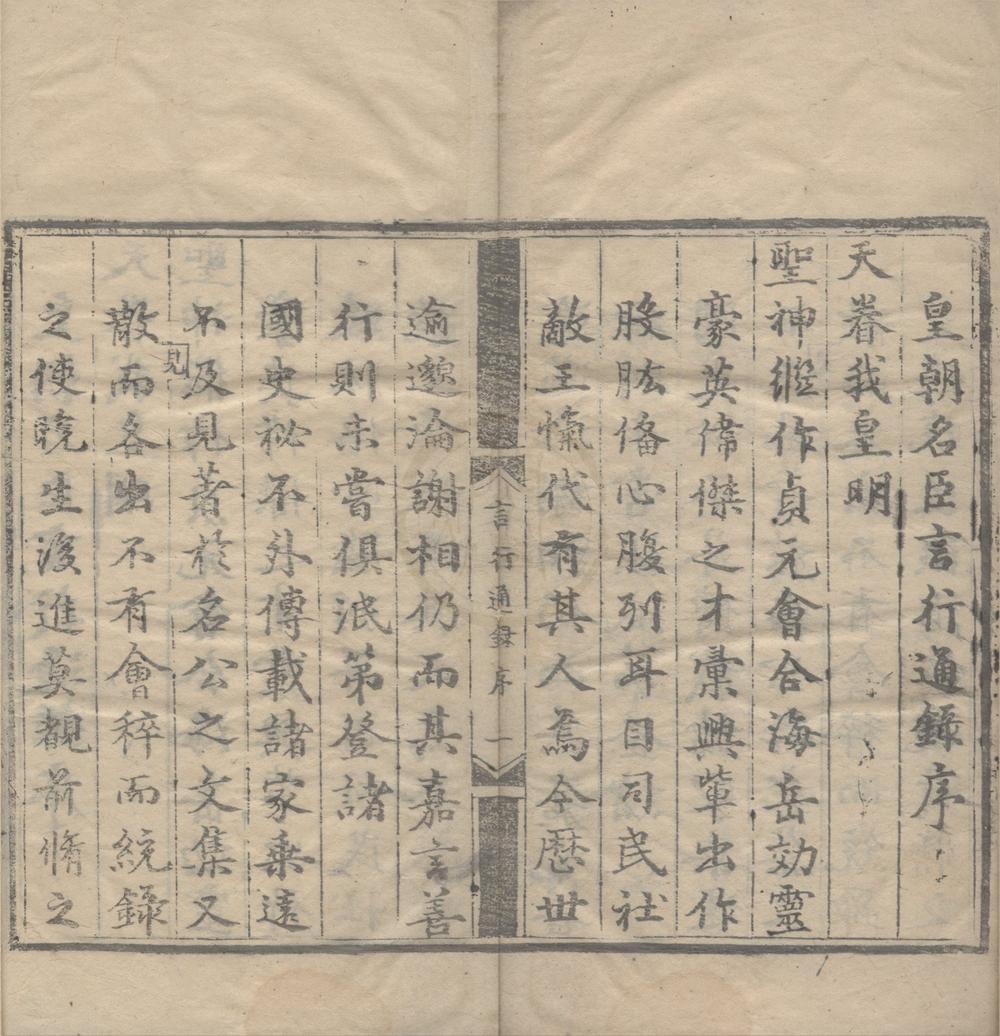 皇朝名臣言行通錄序
天眷我皇明
聖神繼作貞元會合海岳効靈
豪英偉傑之才彙興軰出作
股肱俻心腹列耳目司民社
敵王愾代有其人焉今歷世
言行通錄序 一
逾邈淪謝相仍而其嘉言善
行則未嘗俱泯第登諸
國史祕不外傳載諸家乗遠
不及見著於名公之文集又
見
散而各出不有會稡而統錄
之使晩生後進莫覩前脩之